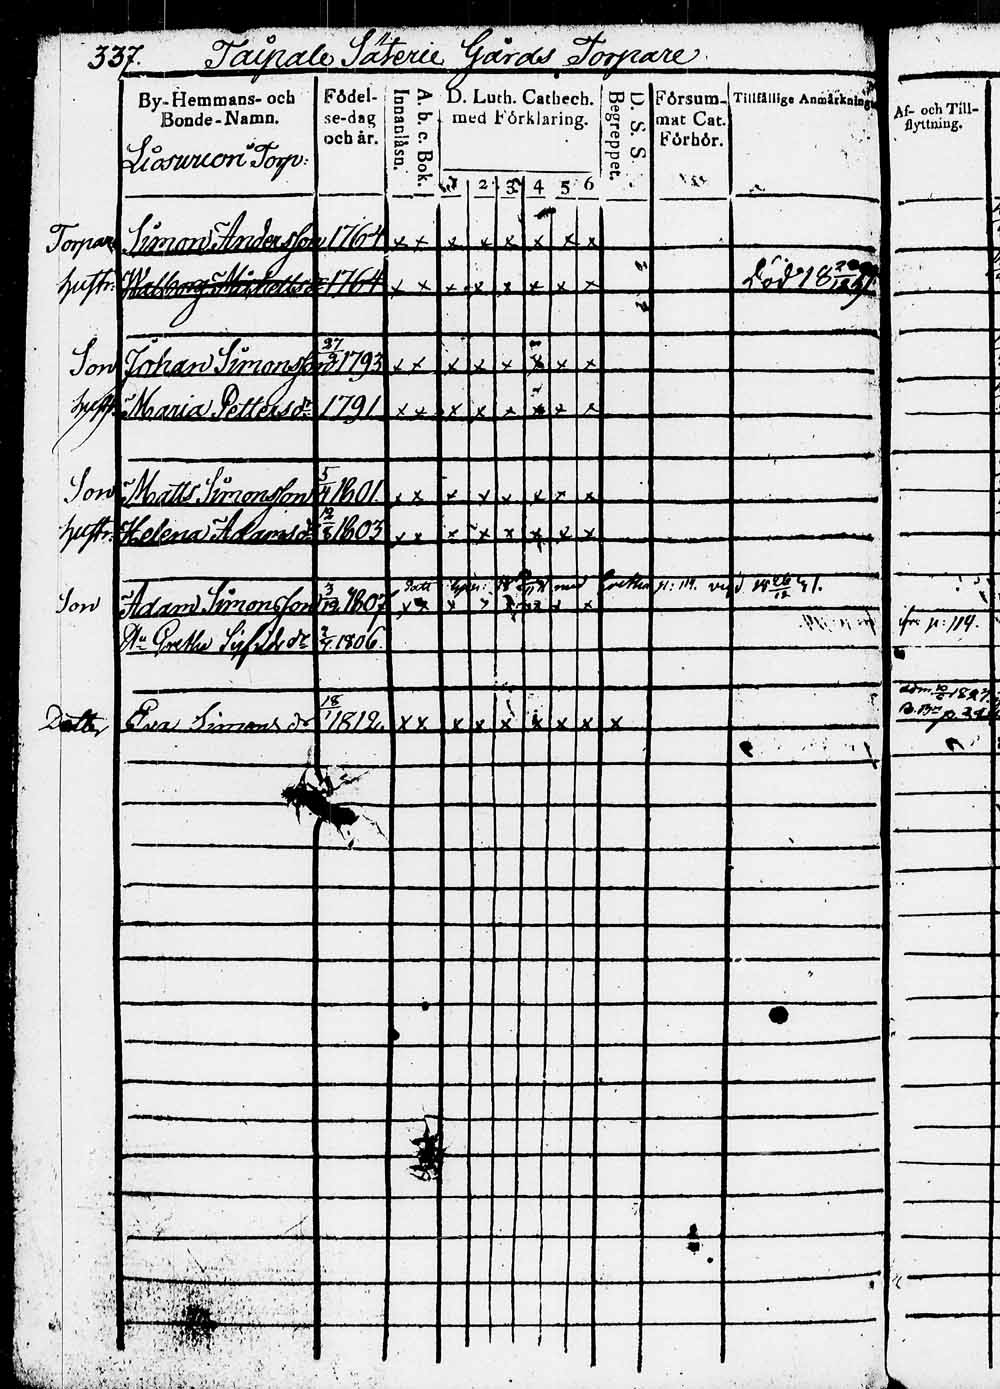 337. Taipale Säterie Gårds Torpare
By-Hemmans- och Bonde-Namn.
Födelse-dag och år.
Innanläsn.
A. b. c. Bok.
D. Luth. Cathech. med Förklaring.
1 2 3 4 5 6
D. S. S. Begreppet.
Försummat Cat. Förhör.
Tillfällige Anmärkning
Af- och Tillflyttning.
Torp:
Torpare Simon Andersson 1764 x x x x x x x x
hustr: Walborg Michelsdr 1764 x x x x x x x x Död 18
Son Johan Simonsson 27/2 1793 x x x x x x x x
hustr: Maria Pettersdr 1791 x x x x x x x x
Son Matts Simonsson 5/4 1801 x x x x x x x x
hustr: Helena Adamsdr 12/8 1803 x x x x x x x x
p: 114.
Son Adam Simonsson 3/12 1807
Hu Gretha Sigfridsdr 1806. fr. p: 114.
Dotter Eva Simonsdr 18/1 1812 x x x x x x x x x